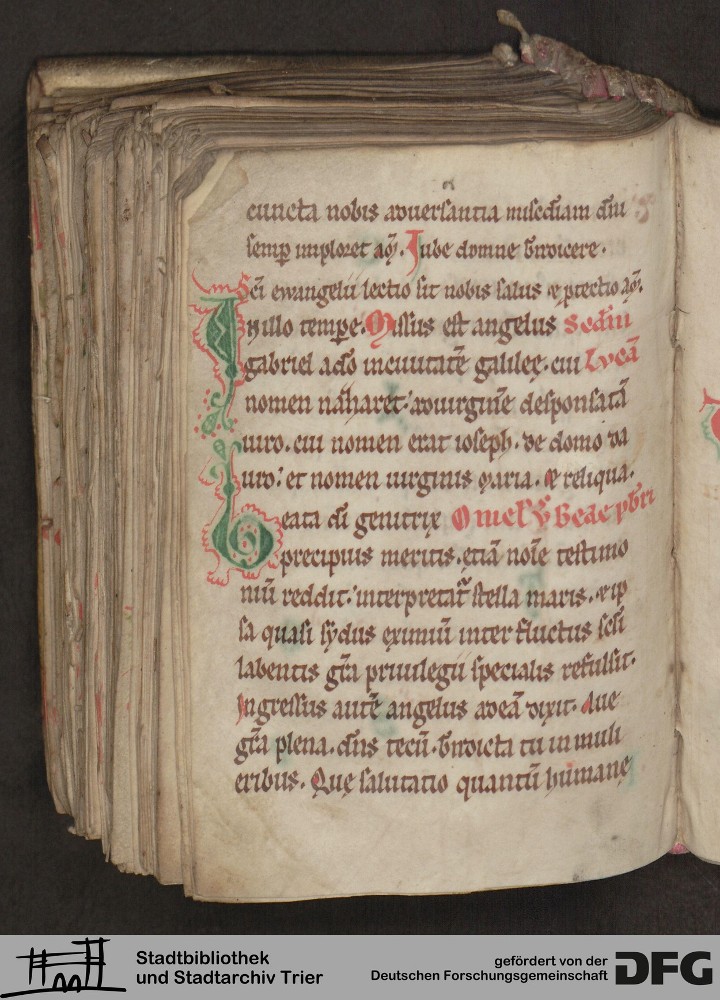 cuncta nobis aduersantia misc̄diam dn̄i
semꝑ imploret am̄. Jube domne bn̄dicere.
Sc̄i ewangelii lectio sit nobis salus ⁊ ꝓtectio am̄.
In illo tempore. Missus est angelus Scd̄m
gabriel a dō in ciuitatē galileę. cui Lucā
nomen nazaret. ad uirginē desponsatā
uiro. cui nomen erat ioseph. de domo da
uid. et nomen uirginis maria. ⁊ reliqua.
Beata dī genitrix Omelia Bede pb̄ri
precipuis meritis. etiā noīe testimo
niū reddit. interpretat᷑ stella maris. ⁊ ip
sa quasi sydus eximiū inter fluctus sc̄li
labentis gr̄a priuilegii specialis refulsit.
Ingressus autē angelus ad eā dixit. Aue
gr̄a plena. dn̄s tecū. bn̄dicta tu in muli
eribus. Quę salutatio quantū humanę
Stadtbibliothek
und Stadtarchiv Trier
gefördert von der
Deutschen Forschungsgemeinschaft DFG